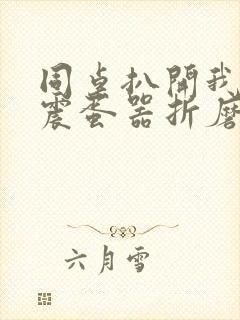 同桌扒開我
震蛋器折磨
六月雪